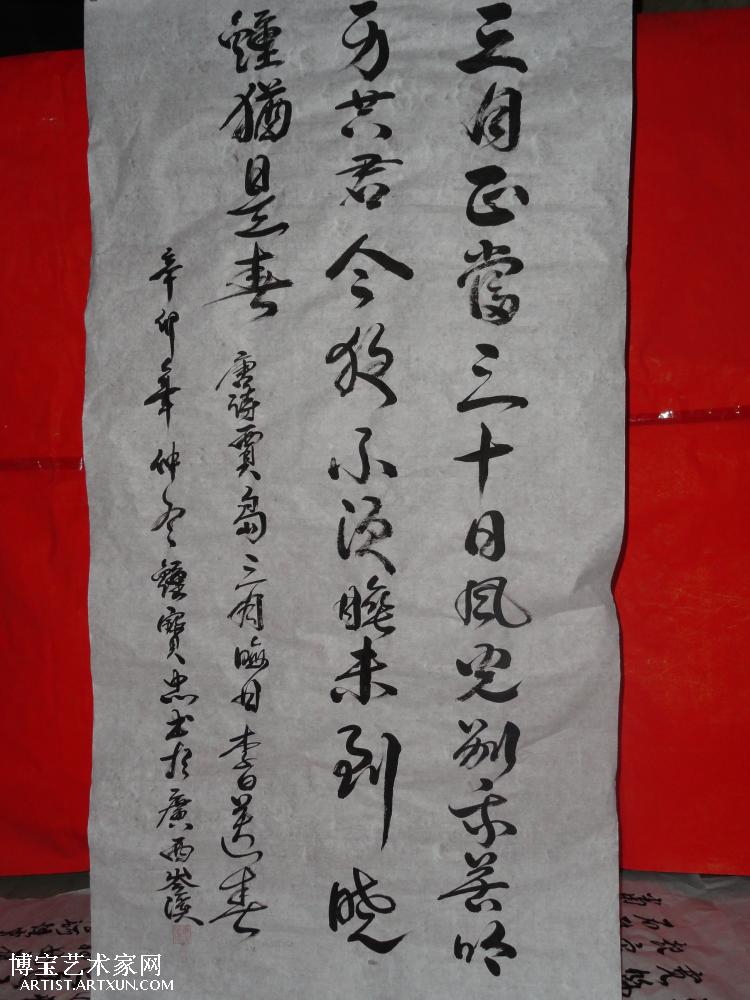 三月正當三十日風光別我苦吟
身共君今夜不須睡未到曉
鍾猶是春 唐詩賈島三月晦日送春
辛卯年仲冬鍾寶忠書於廣西岑溪
博宝艺术家网
ARTIST.ARTXUN.COM